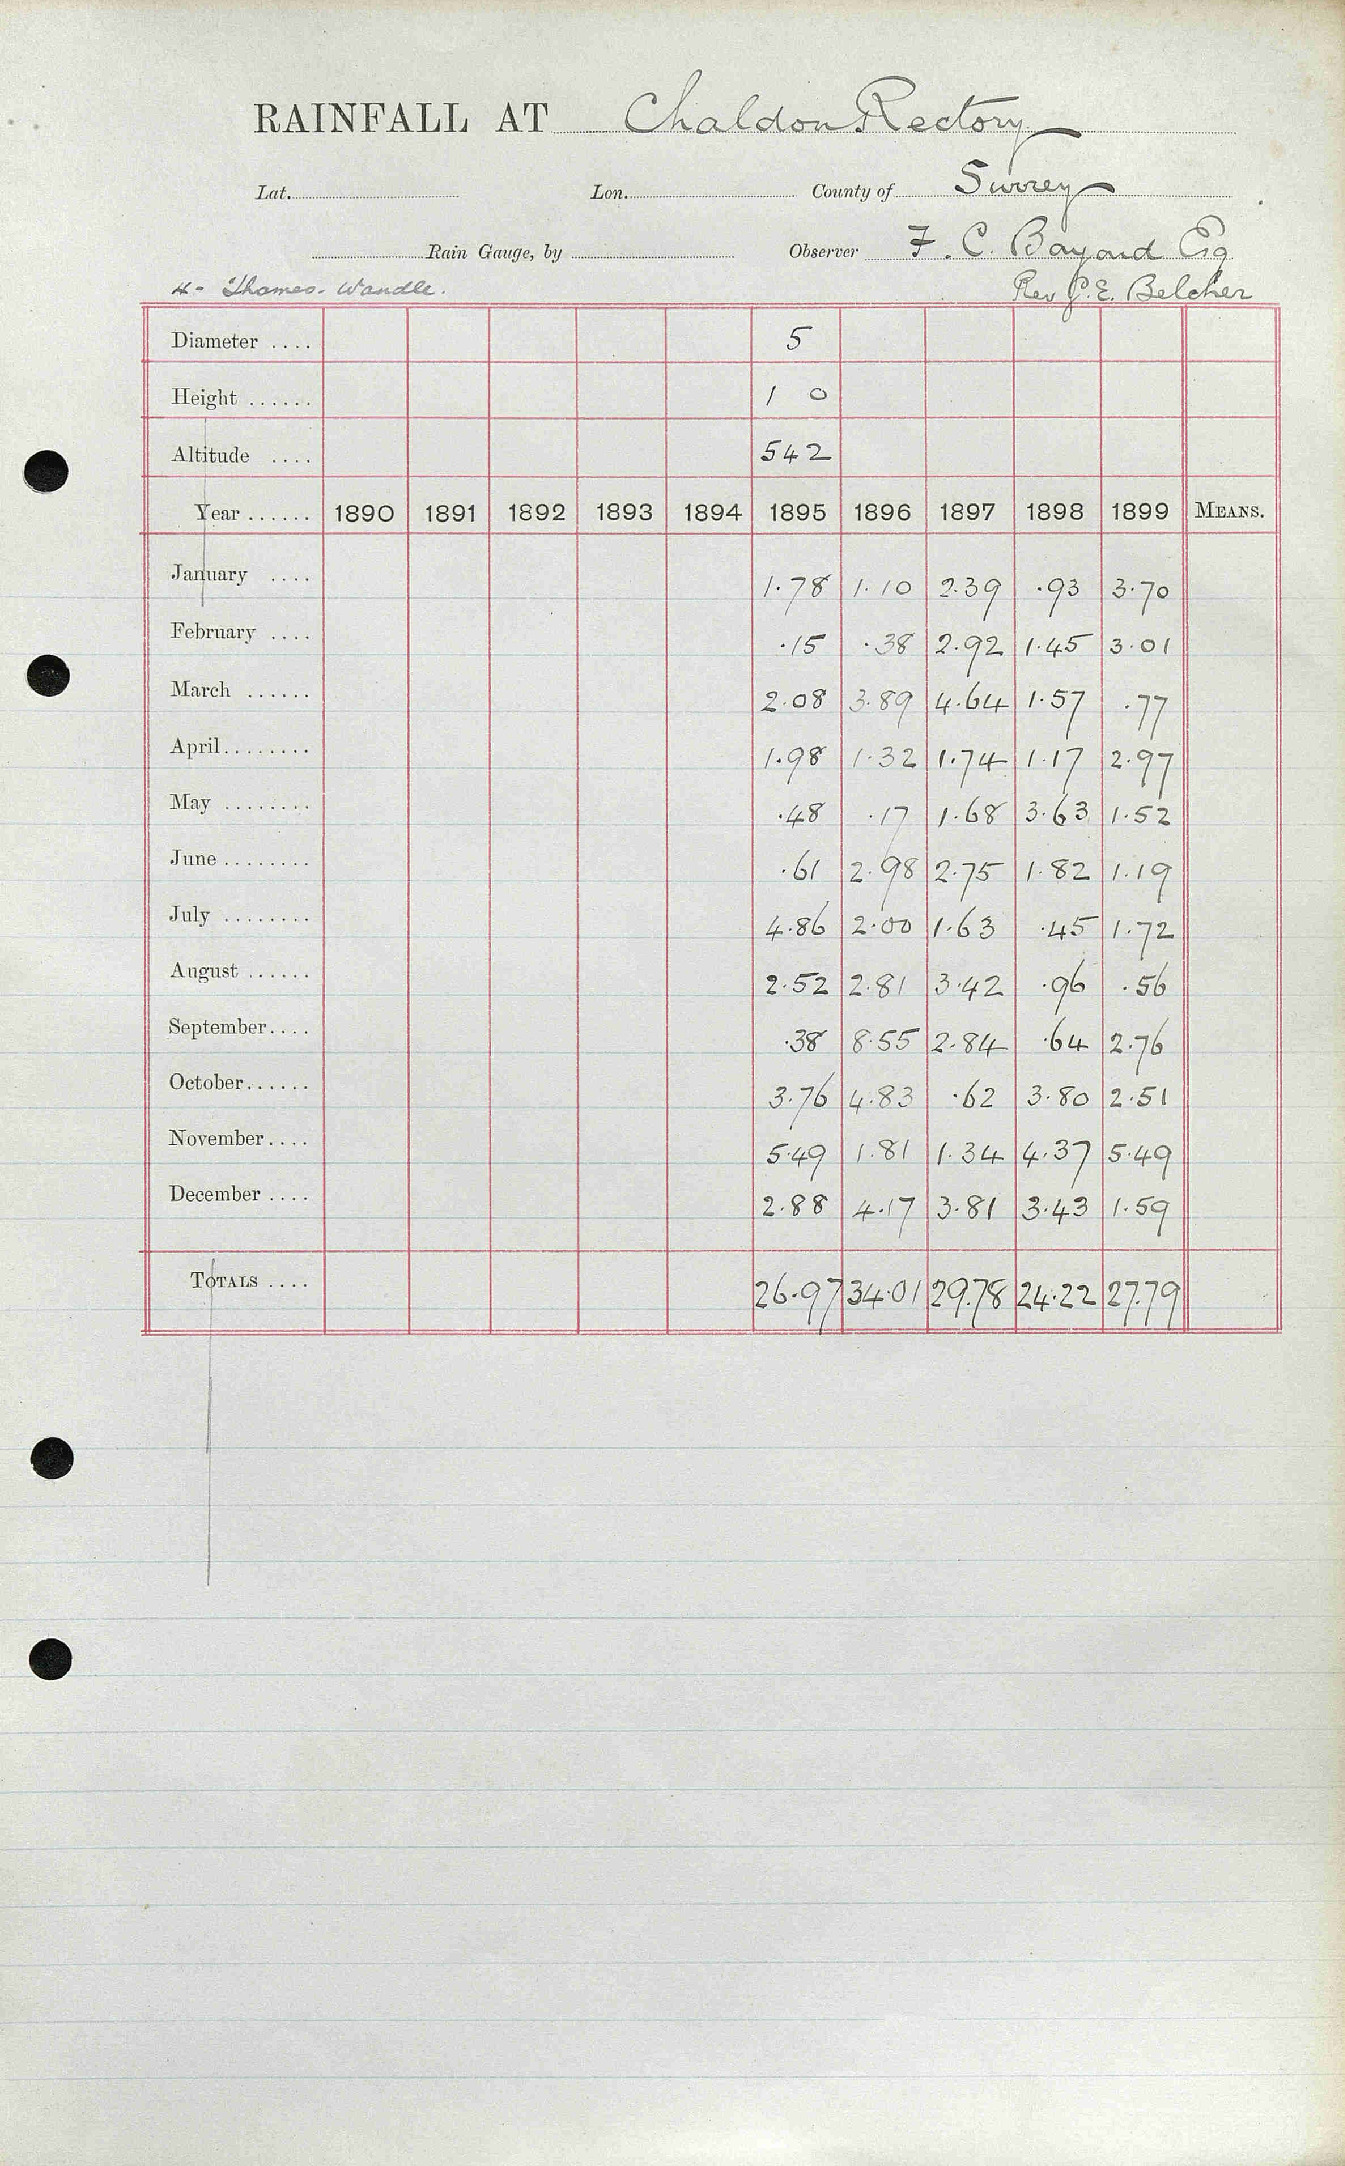 RAINFALL AT Chaldon Rectory
Lat. Lon. County of Surrey
Rain Gauge, by Observer F. C. Bayard Esq
4- Thames. Wandle. Rev G. E. Belcher
Diameter .... 5
Height ...... 1 0
Altitude .... 542
Year ...... 1890 1891 1892 1893 1894 1895 1896 1897 1898 1899 MEANS.
January .... 1.78 1.10 2.39 .93 3.70
February .... .15 .38 2.92 1.45 3.01
March ...... 2.08 3.89 4.64 1.57 .77
April ........ 1.98 1.32 1.74 1.17 2.97
May ........ .48 .17 1.68 3.63 1.52
June ........ .61 2.98 2.75 1.82 1.19
July ........ 4.86 2.00 1.63 .45 1.72
August ...... 2.52 2.81 3.42 .96 .56
September.... .38 8.55 2.84 .64 2.76
October...... 3.76 4.83 .62 3.80 2.51
November.... 5.49 1.81 1.34 4.37 5.49
December .... 2.88 4.17 3.81 3.43 1.59
TOTALS .... 26.97 34.01 29.78 24.22 27.79